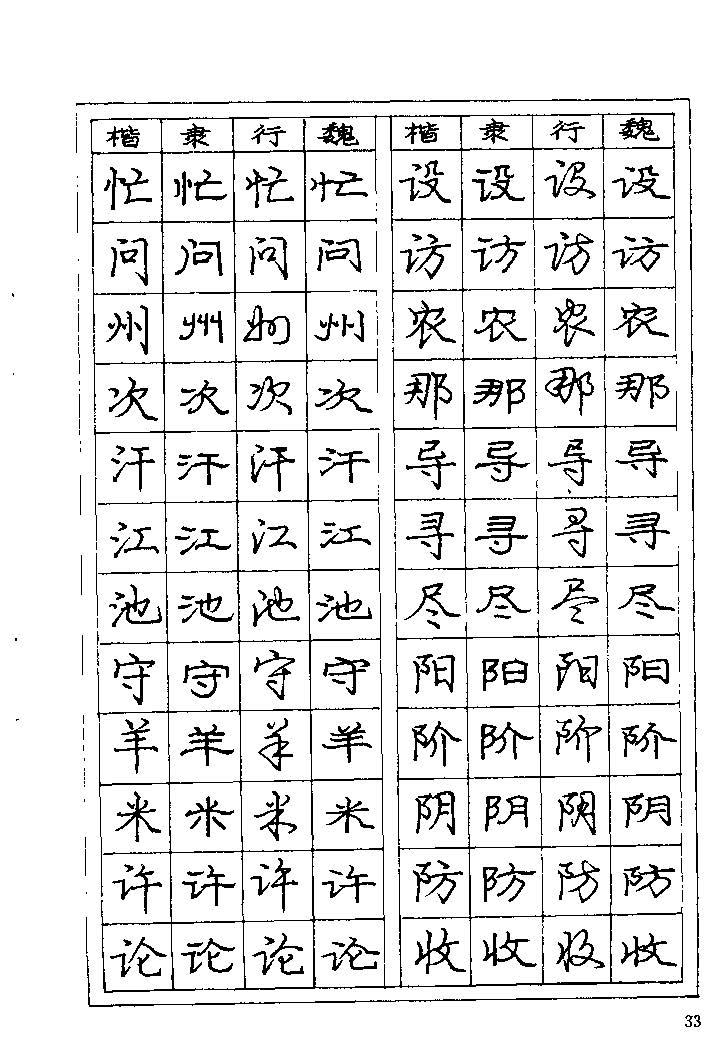 楷 隶 行 魏 楷 隶 行 魏
忙 忙 忙 忙 设 设 设 设
问 问 问 问 访 访 访 访
州 州 州 州 农 农 农 农
次 次 次 次 那 那 那 那
汗 汗 汗 汗 导 导 导 导
江 江 江 江 寻 寻 寻 寻
池 池 池 池 尽 尽 尽 尽
守 守 守 守 阳 阳 阳 阳
羊 羊 羊 羊 阶 阶 阶 阶
米 米 米 米 阴 阴 阴 阴
许 许 许 许 防 防 防 防
论 论 论 论 收 收 收 收
33